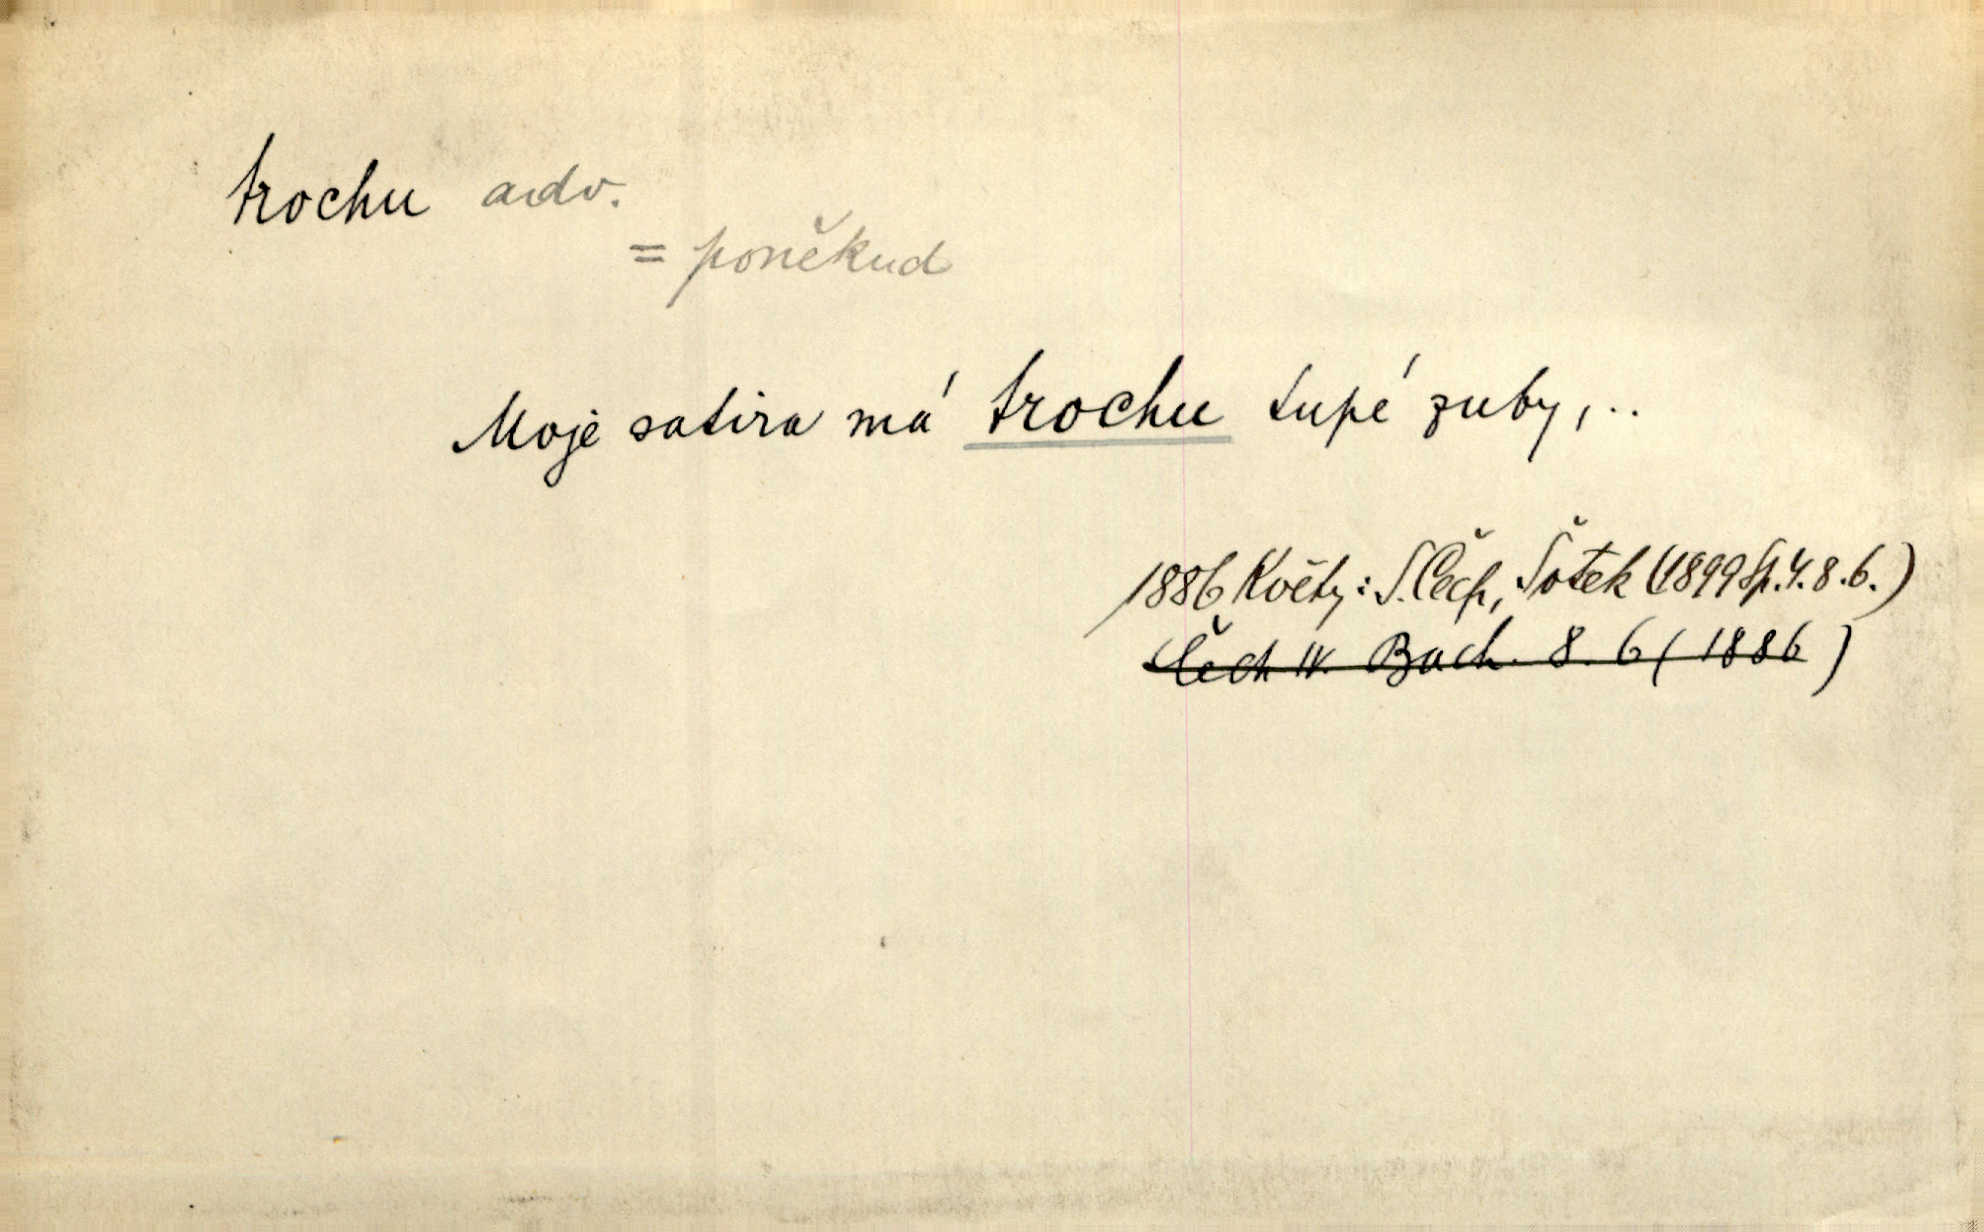 trochu adv.
= poněkud
Moje satira má trochu tupé zuby,..
1886 Květy: S. Čech, Šotek (1899 Sp. 4. 8. 6.)
Čech IV. Bach. 8. 6 (1886)